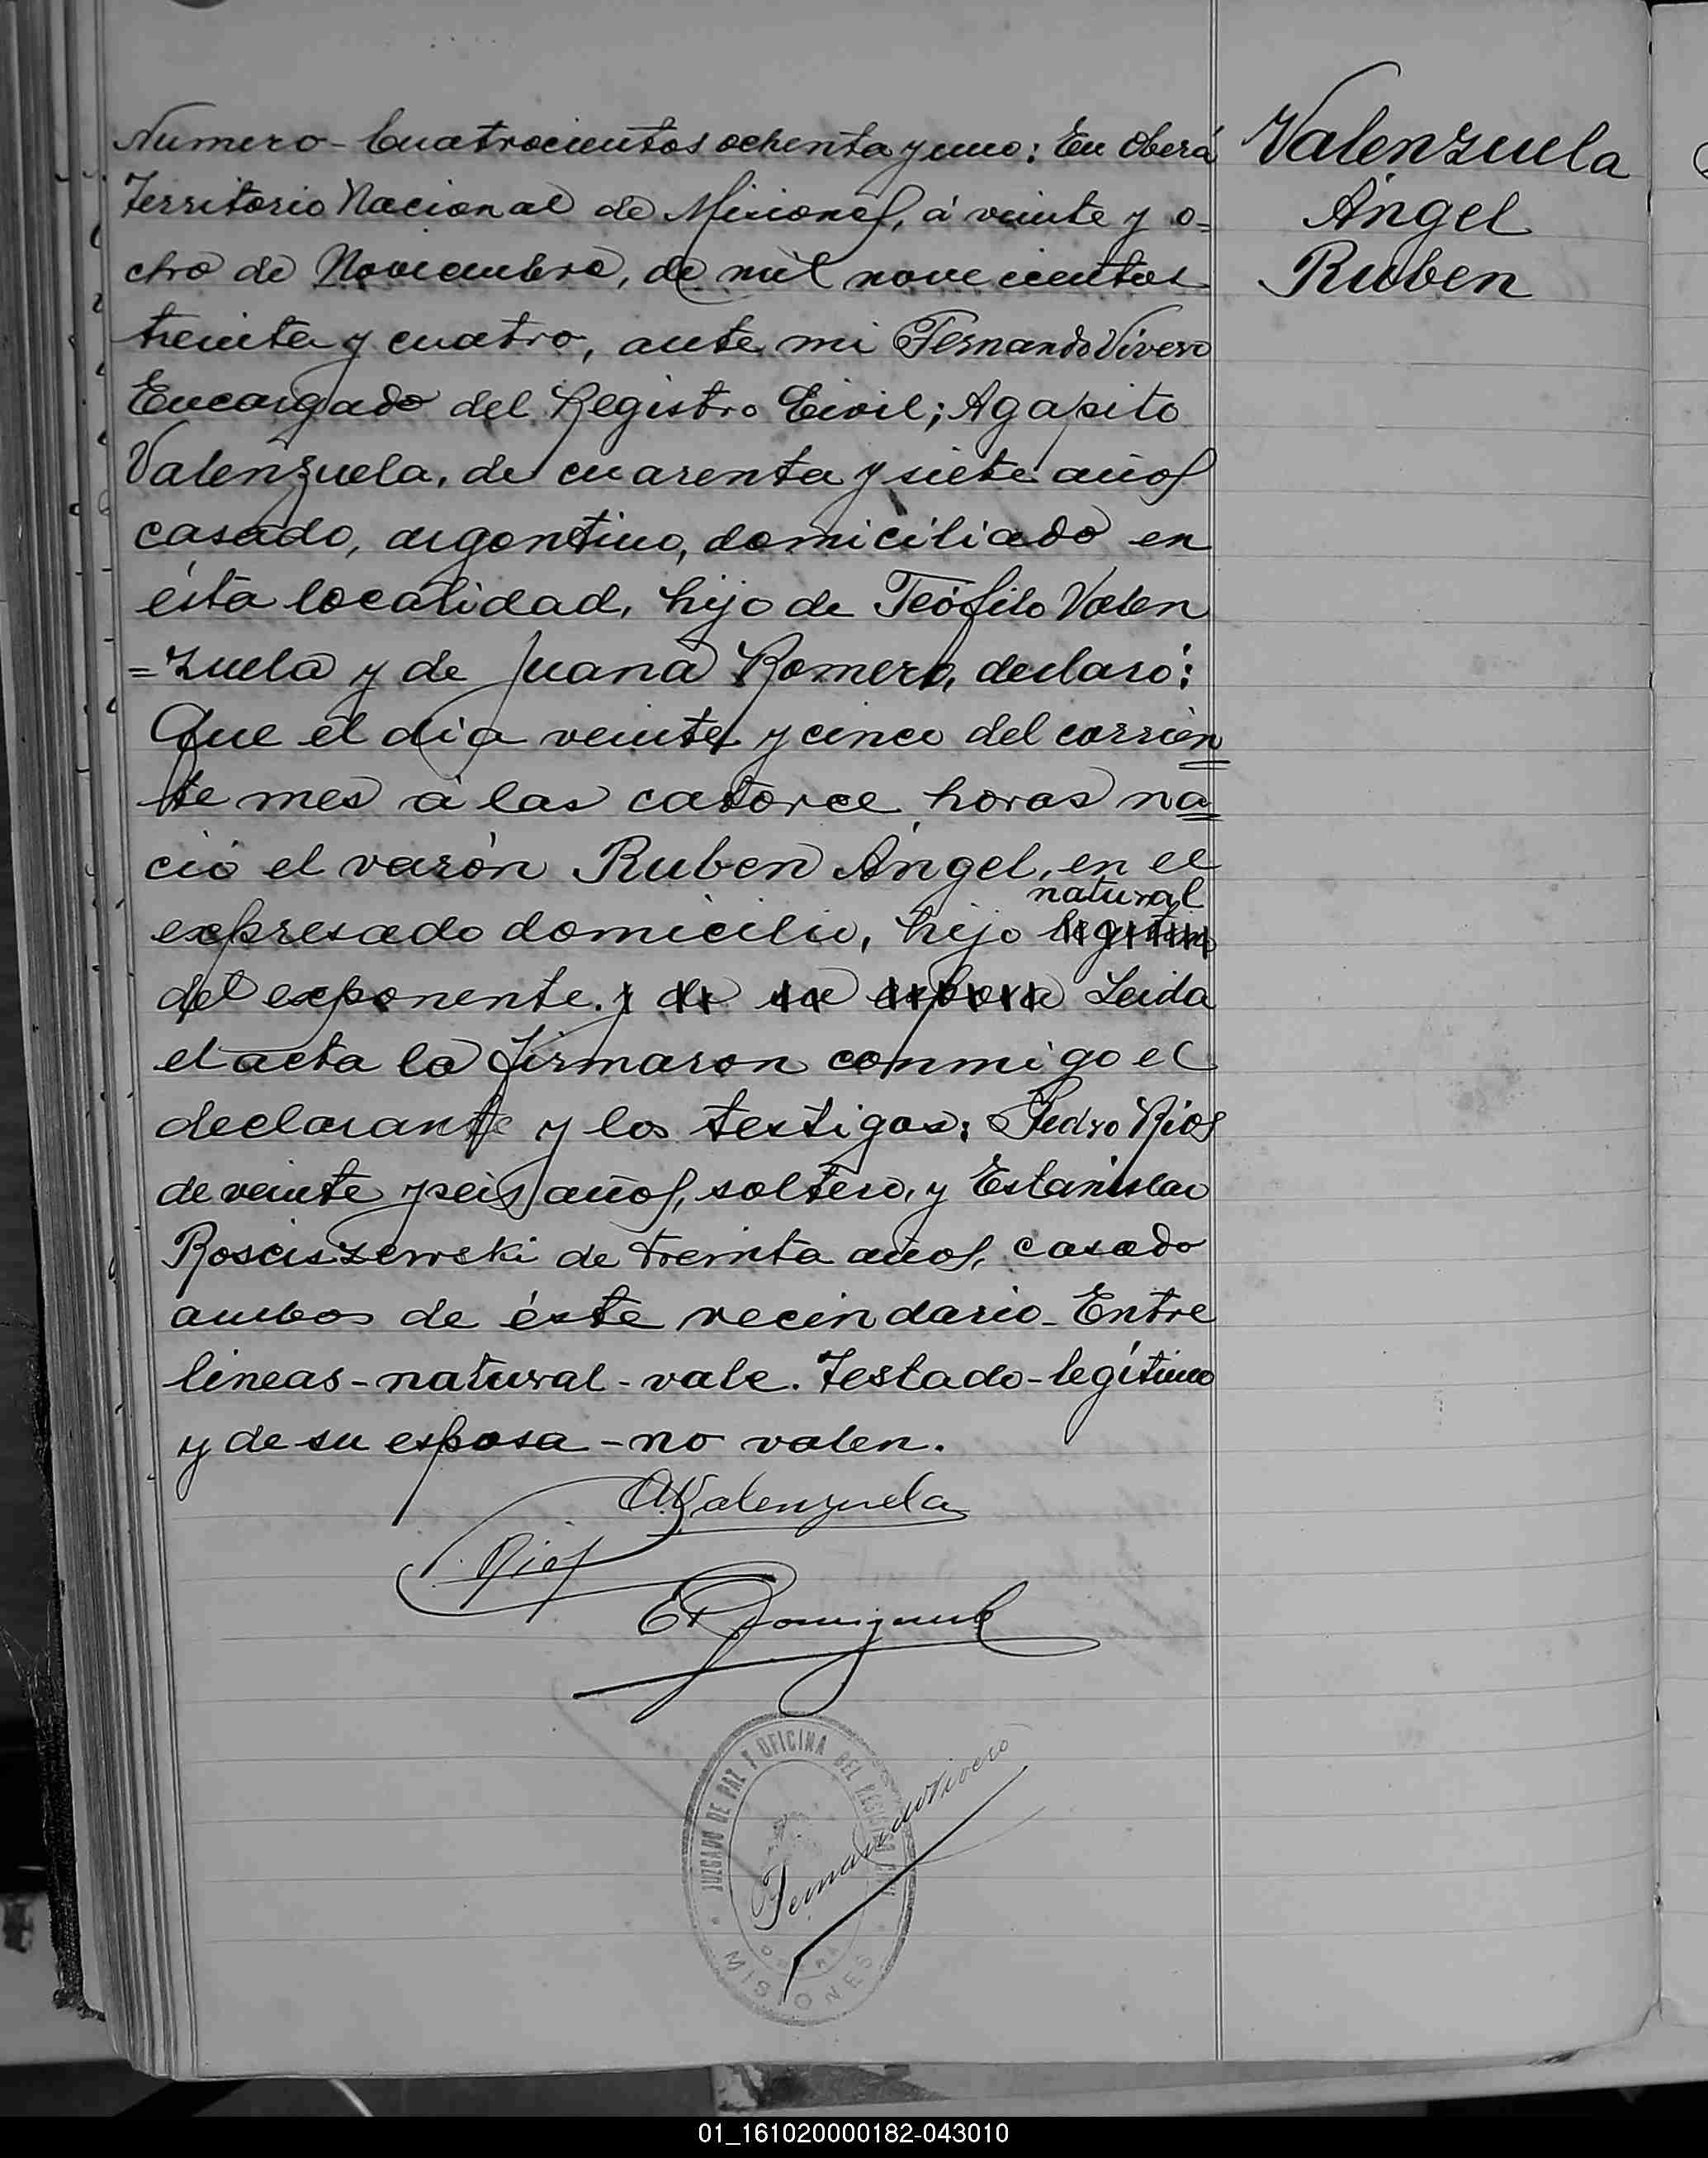 Numero - Cuatrocientos ochenta y uno: En Oberá
Territorio Nacional de Misiones, á veinte y o=
cho de Noviembre, de mil novecientos
treinta y cuatro, ante mi Fernando Vivero
Encargado del Registro Civil; Agapito
Valenzuela, de cuarenta y siete años
casado, argentino, domiciliado en
ésta localidad, hijo de Teófilo Valen
=zuela y de Juana Romero, declaró:
Que el dia veinte y cinco del corrien
te mes á las catorce horas na
ció el varón Ruben Ángel, en el
natural
expresado domicilio, hijo legitimo
del exponente. y de su esposa Leida
el acta la firmaron conmigo el
declarante y los testigos: Pedro Rios
de veinte y seis años, soltero, y Estanislao
Rosciszewski de treinta años, casado
ambos de éste vecindario - Entre
lineas - natural - vale. Testado - legítimo
y de su esposa - no valen.
AValenzuela
Rios
Fernando Vivero
JUZGADO DE PAZ Y OFICINA DEL REGISTRO CIVIL
OBERA
MISIONES
Valenzuela
Ángel
Ruben
01_161020000182-043010